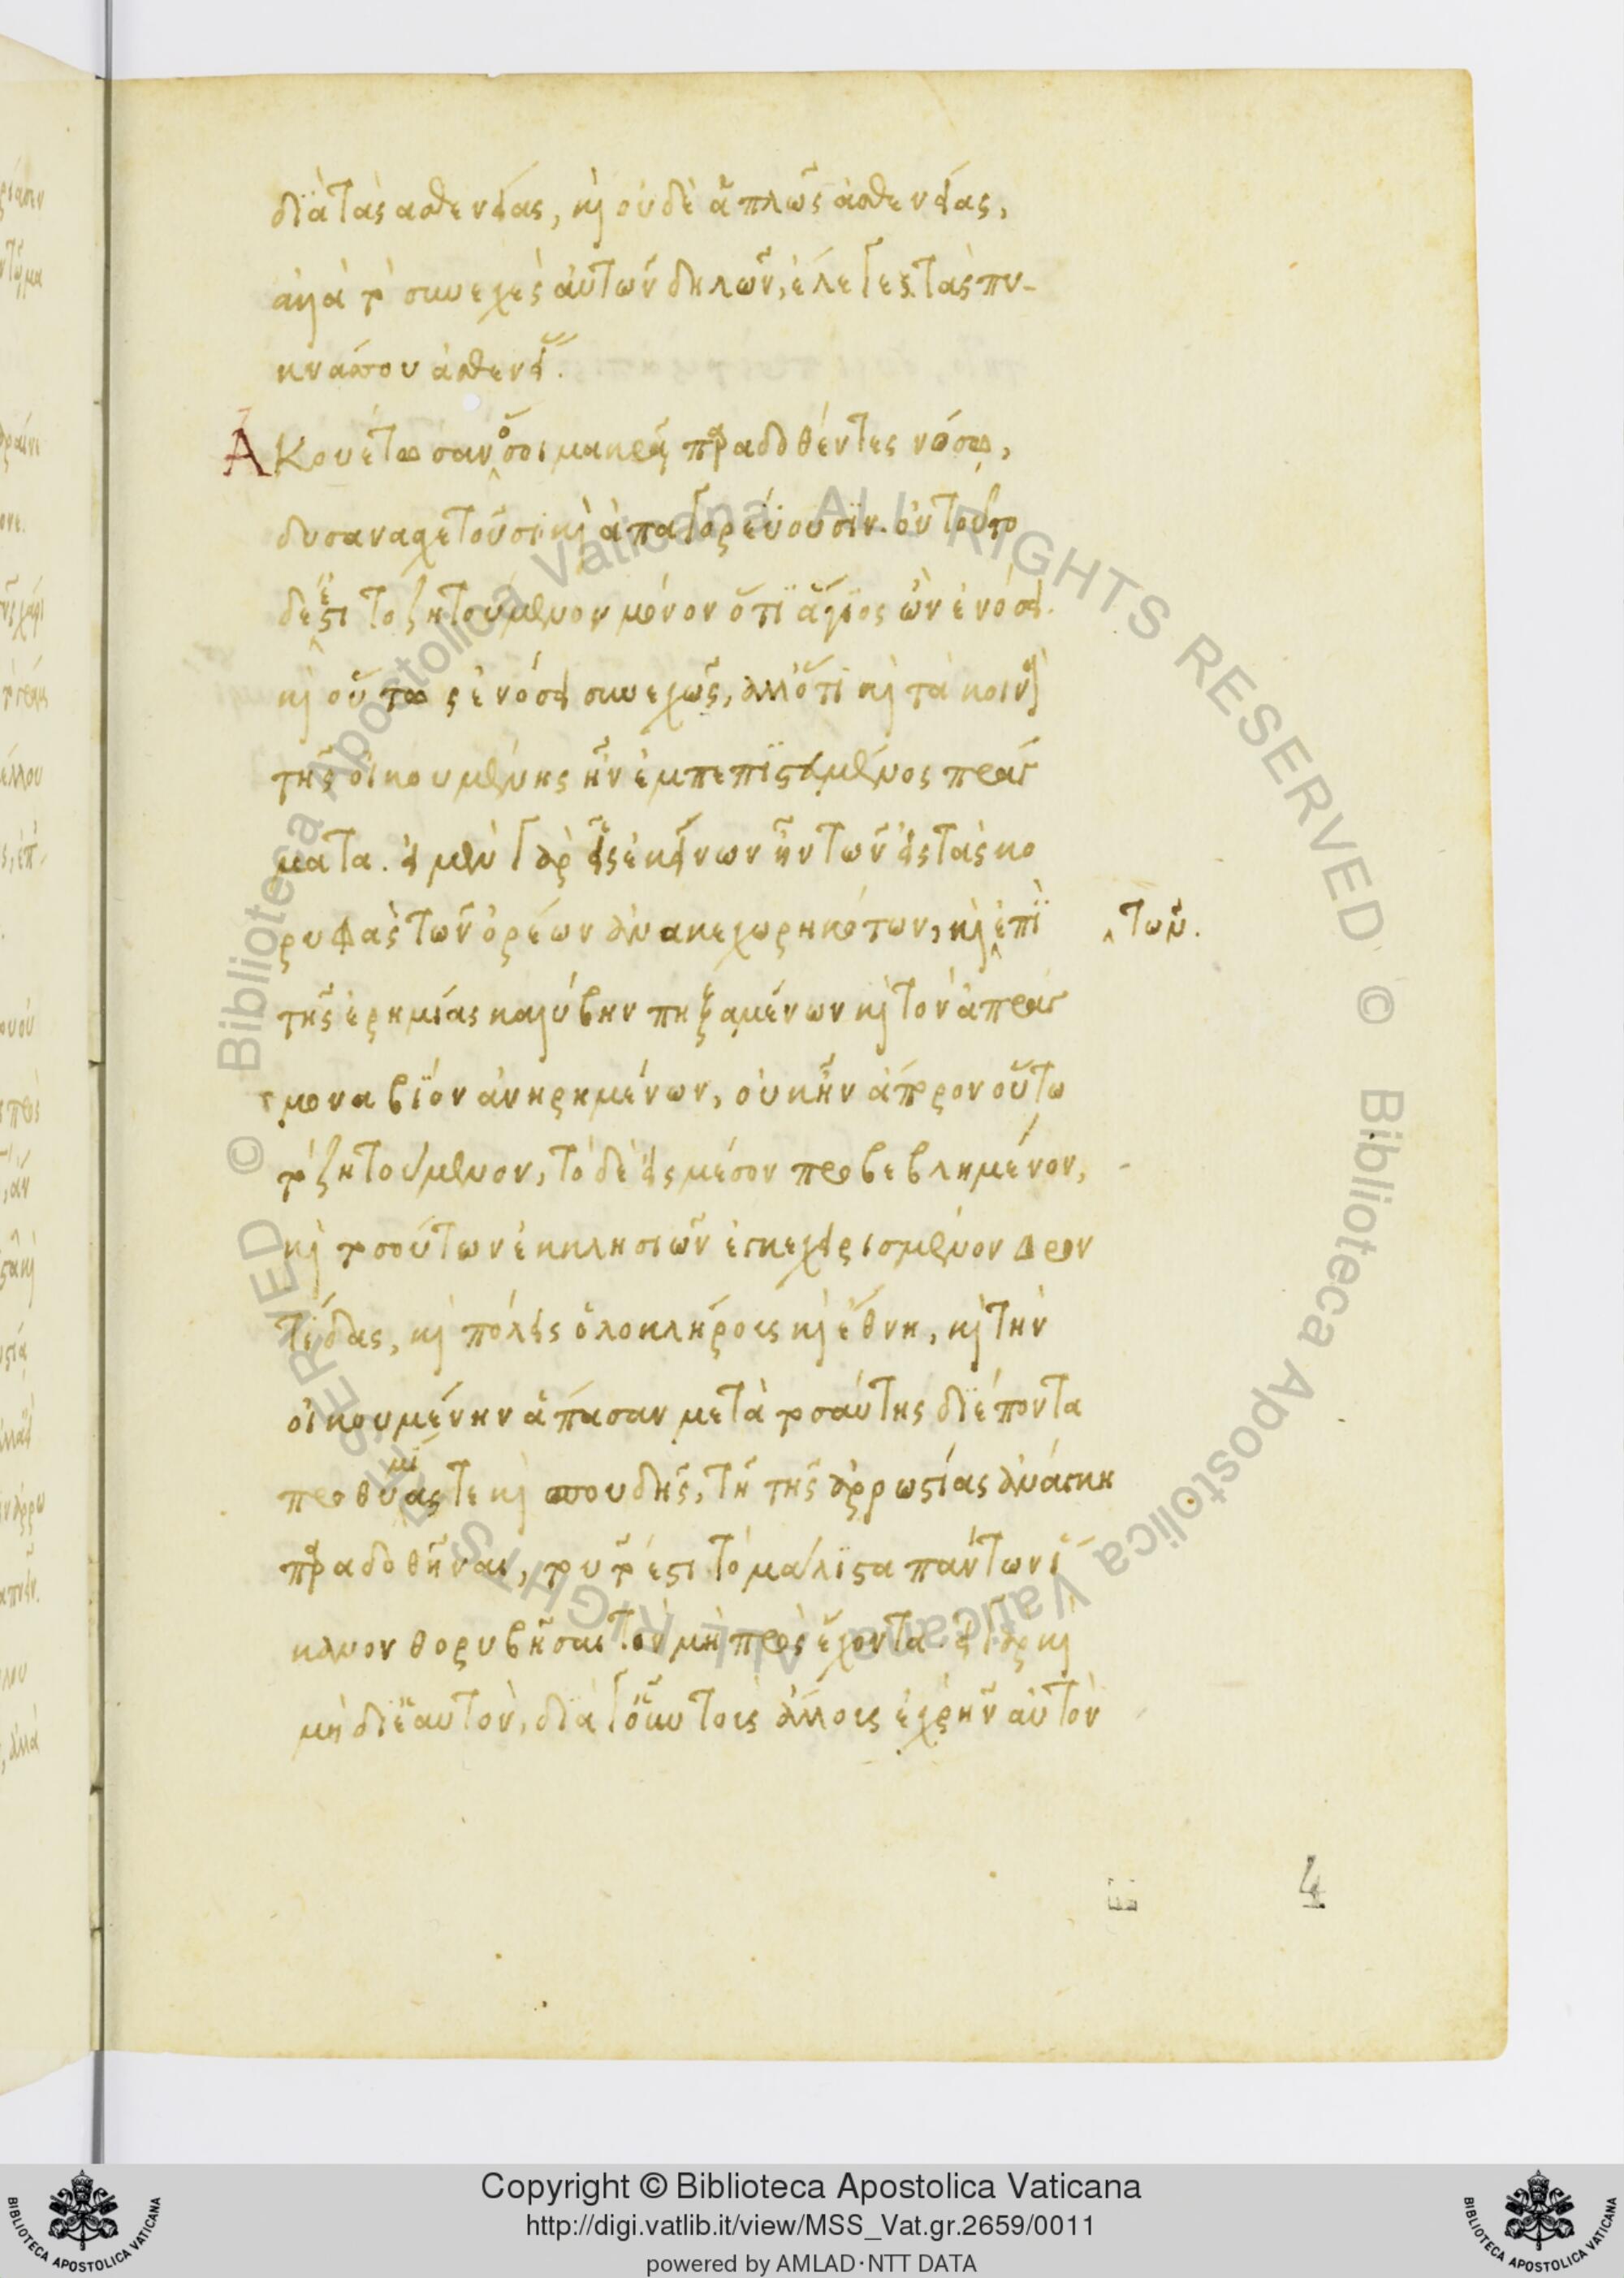 διὰ τὰς ἀσθενείας, καὶ οὐδὲ ἁπλῶς ἀσθενείας,
ἀλλὰ τὸ συνεχὲς αὐτῶν δηλῶν, ἔλεγε, τὰς πυ-
κνάς σου ἀσθενεί.
Ἀκουέτωσαν ὅσοι μακρᾷ παραδοθέντες νόσῳ,
δυσανασχετοῦσι καὶ ἀπαγορεύουσιν. οὐ τοῦτο
δέ ἐστι τὸ ζητούμενον μόνον ὅτι ἅγιος ὢν ἐνόσει.
καὶ οὕτως ἐνόσει συνεχῶς, ἀλλ' ὅτι καὶ τὰ κοινὰ
τῆς οἰκουμένης ἦν ἐμπεπιστευμένος πράγ
ματα. εἰ μὲν γὰρ εἷς ἐκείνων ἦν τῶν εἰς τὰς κο
ρυφὰς τῶν ὀρέων ἀνακεχωρηκότων, καὶ ἐπὶ
τῶν.
τῆς ἐρημίας καλύβην πηξαμένων καὶ τὸν ἀπράγ
μονα βίον ἀνῃρημένων, οὐκ ἦν ἄπορον οὕτω
τὸ ζητούμενον, τὸ δὲ εἰς μέσον προβεβλημένον,
καὶ τοσούτων ἐκκλησιῶν ἐγκεχειρισμένον φρον
τίδας, καὶ πόλεις ὁλοκλήροις καὶ ἔθνη, καὶ τὴν
οἰκουμένην ἅπασαν μετὰ τοσαύτης διέποντα
προθυμίας τε καὶ σπουδῆς, τῇ τῆς ἀρρωστίας ἀνάγκῃ
παραδοθῆναι, τοῦτό ἐστι τὸ μάλιστα πάντων ἱ
κανὸν θορυβῆσαι τὸν μὴ προσέχοντα. εἰ γὰρ καὶ
μὴ δι' ἑαυτὸν, διὰ γοῦν τοῖς ἄλλοις ἐχρῆν αὐτὸν
4
Copyright © Biblioteca Apostolica Vaticana
http://digi.vatlib.it/view/MSS_Vat.gr.2659/0011
powered by AMLAD·NTT DATA
© Biblioteca Apostolica Vaticana ALL RIGHTS RESERVED © Biblioteca Apostolica Vaticana ALL RIGHTS RESERVED
BIBLIOTECA APOSTOLICA VATICANA
BIBLIOTECA APOSTOLICA VATICANA